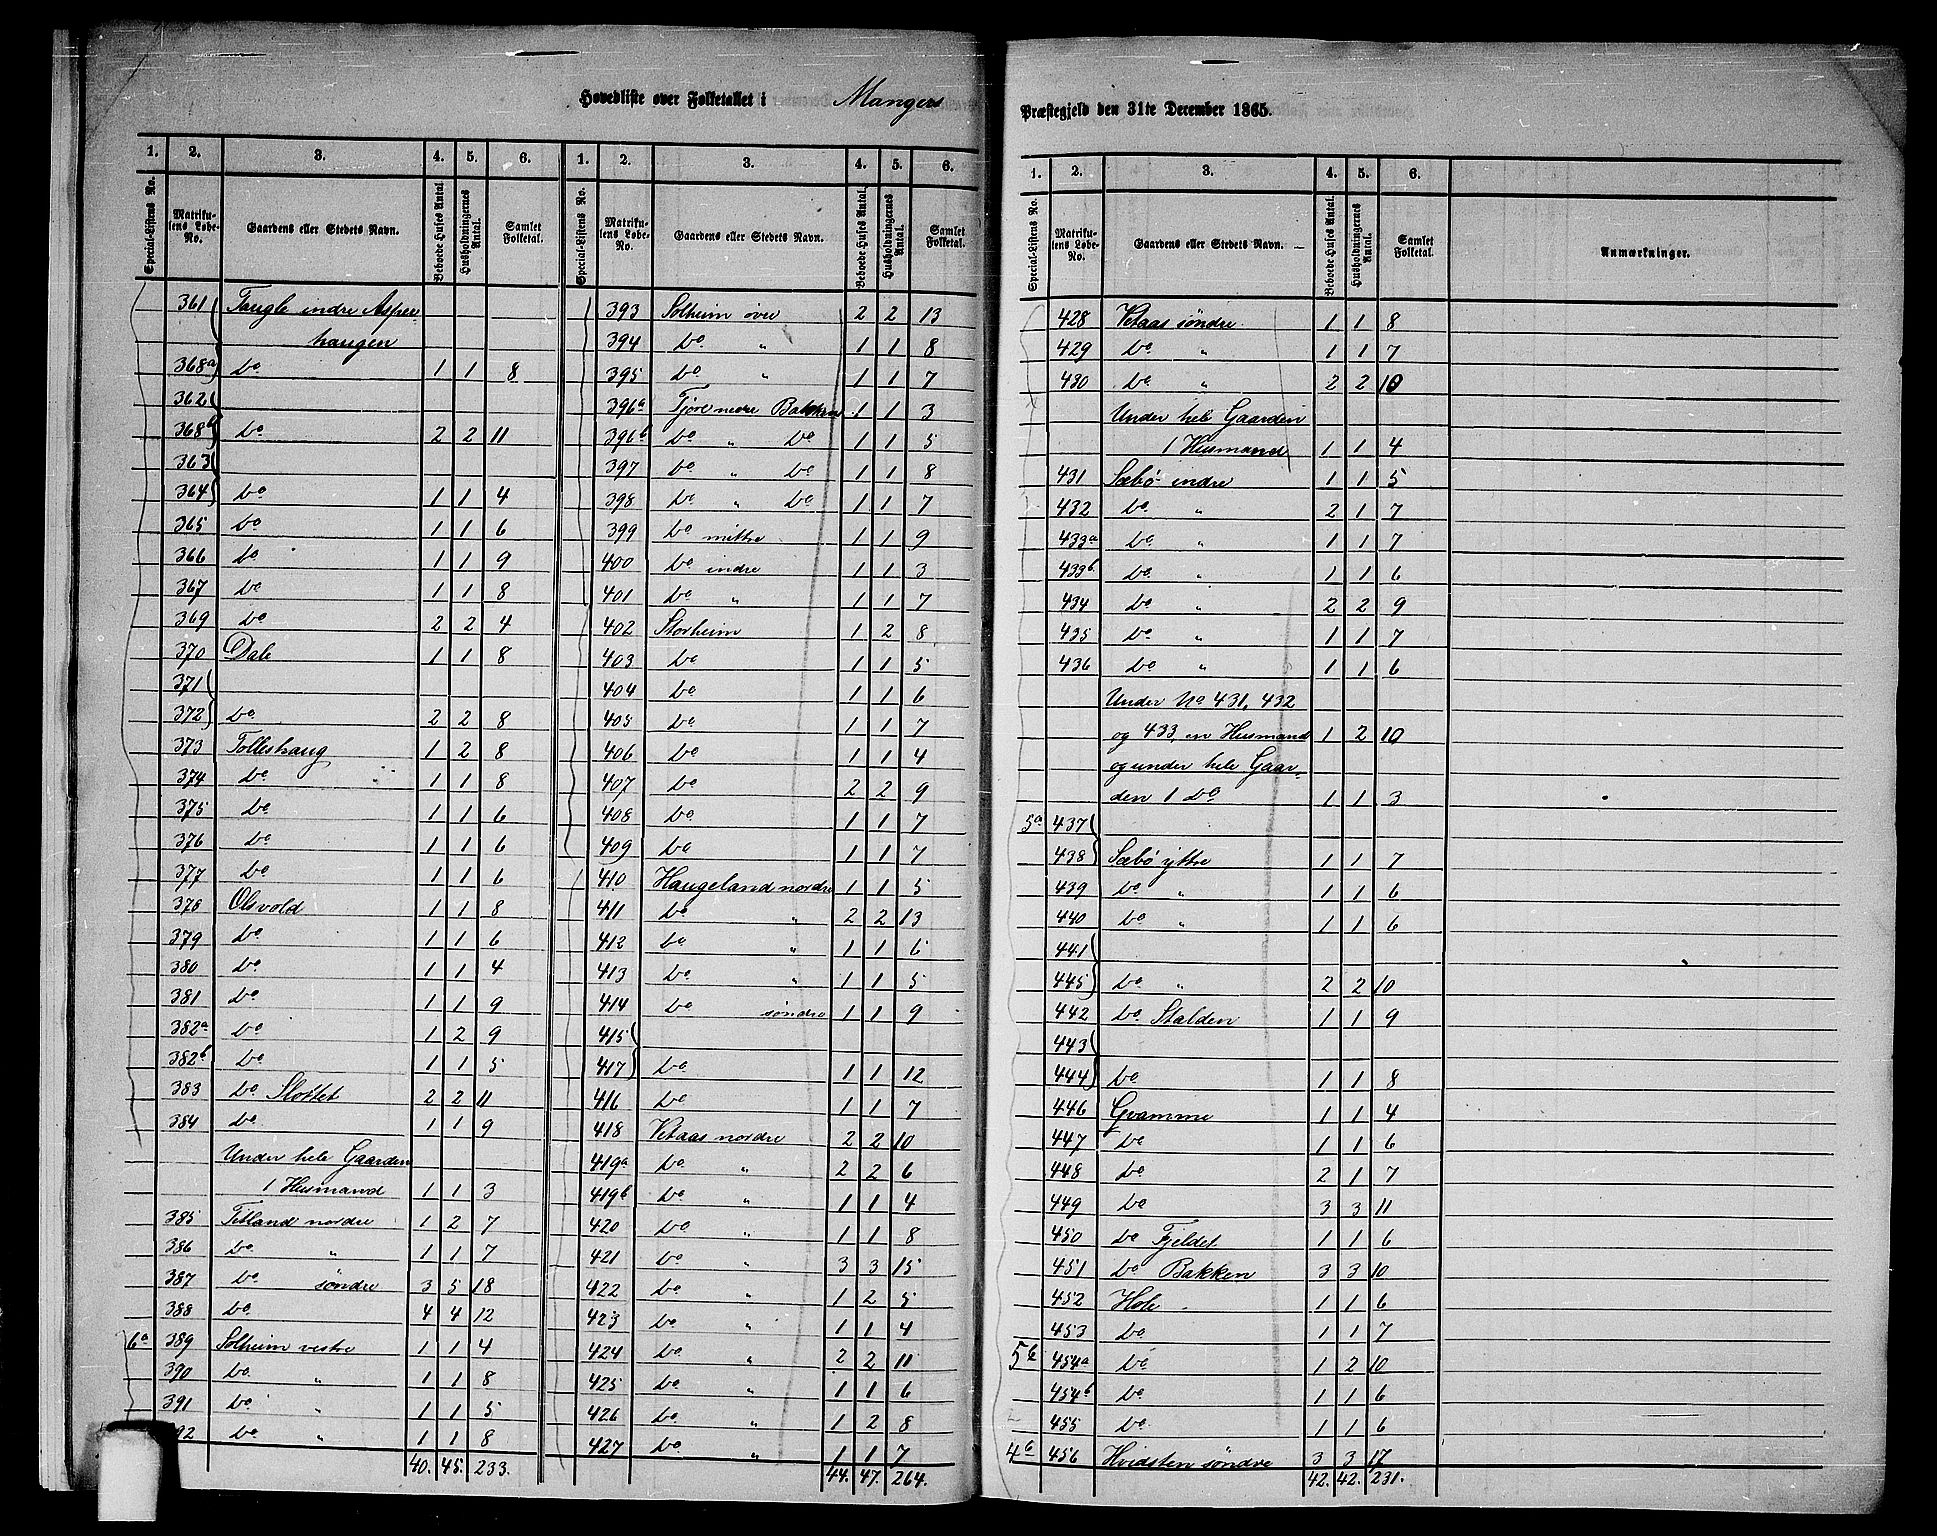 Hovedliste over Folketallet i Mangers Præstegjeld den 31te December 1865.
1. 2. 3. 4. 5. 6. 1. 2. 3. 4. 5. 6.
Special-Listens No. Matrikulens Løbe-No. Gaardens eller Stedets Navn. Beboede Huses Antal. Husholdningernes Antal. Samlet Folketal. Special-Listens No. Matrikulens Løbe-No. Gaardens eller Stedets Navn. Beboede Huses Antal. Husholdningernes Antal. Samlet Folketal.
361 Taugle indre Aspe
haugen
368a Do 1 1 8
362
368b Do 2 2 11
363
364 Do 1 1 4
365 Do 1 1 6
366 Do 1 1 9
367 Do 1 1 8
369 Do 2 2 4
370 Dale 1 1 8
371
372 Do 2 2 8
373 Tolleshaug 1 2 8
374 Do „ 1 1 8
375 Do 1 1 6
376 Do 1 1 6
377 Do 1 1 6
378 Olsvold 1 1 8
379 Do 1 1 6
380 Do 1 1 4
381 Do 1 1 9
382a Do 1 2 9
382b Do 1 1 5
383 Do Slottet 2 2 11
384 Do 1 1 9
Under hele Gaarden
1 Husmand 1 1 3
385 Tetland nordre 1 2 7
386 Do „ 1 1 7
387 Do søndre 3 5 18
388 Do 4 4 12
6a 389 Solheim vestre 1 1 4
390 Do „ 1 1 8
391 Do „ 1 1 5
392 Do „ 1 1 8
40. 45. 233.
393 Solheim øvre 2 2 13
394 Do „ 1 1 8
395 Do „ 1 1 7
396a Tjore nedre Bakken 1 1 3
396b Do „ Do 1 1 5
397 Do „ Do 1 1 8
398 Do „ Do 1 1 7
399 Do mittre 1 1 9
400 Do indre 1 1 3
401 Do „ 1 1 7
402 Storheim 1 2 8
403 Do 1 1 5
404 Do 1 1 6
405 Do 1 1 7
406 Do 1 1 4
407 Do 2 2 9
408 Do 1 1 7
409 Do 1 1 7
410 Haugeland nordre 1 1 5
411 Do „ 2 2 13
412 Do „ 1 1 6
413 Do „ 1 1 5
414 Do søndre 1 1 9
415
417 Do 1 1 12
416 Do 1 1 7
418 Vetaas nordre 2 2 10
419a Do „ 2 2 6
419b Do „ 1 1 4
420 Do „ 1 1 8
421 Do „ 3 3 15
422 Do „ 1 2 5
423 Do „ 1 1 4
424 Do „ 2 2 11
425 Do „ 1 1 6
426 Do „ 1 2 8
427 Do „ 1 1 7
44. 47. 264.
1. 2. 3. 4. 5. 6.
Special-Listens No. Matrikulens Løbe-No. Gaardens eller Stedets Navn. Beboede Huses Antal. Husholdningernes Antal. Samlet Folketal. Anmærkninger.
428 Vetaas søndre 1 1 8
429 Do „ 1 1 7
430 Do „ 2 2 10
Under hele Gaarden
1 Husmand 1 1 4
431 Sæbø indre 1 1 5
432 Do „ 2 1 7
433a Do „ 1 1 7
433b Do „ 1 1 6
434 Do „ 2 2 9
435 Do „ 1 1 7
436 Do „ 1 1 6
Under No 431, 432
og 433, en Husmand 1 2 10
og under hele Gaar-
den 1 Do 1 1 3
5a 437
438 Sæbø yttre 1 1 7
439 Do „ 1 1 6
440 Do „ 1 1 6
441
445 Do „ 2 2 10
442 Do Stalden 1 1 9
443
444 Do 1 1 8
446 Gvamme 1 1 4
447 Do 1 1 6
448 Do 2 1 7
449 Do 3 3 11
450 Do Fjeldet 1 1 6
451 Do Bakken 3 3 10
452 Hole 1 1 6
453 Do 1 1 7
5b 454a Do 1 2 10
454b Do 1 1 6
455 Do 1 1 6
4b 456 Hvidsten søndre 3 3 17
42. 42. 231.